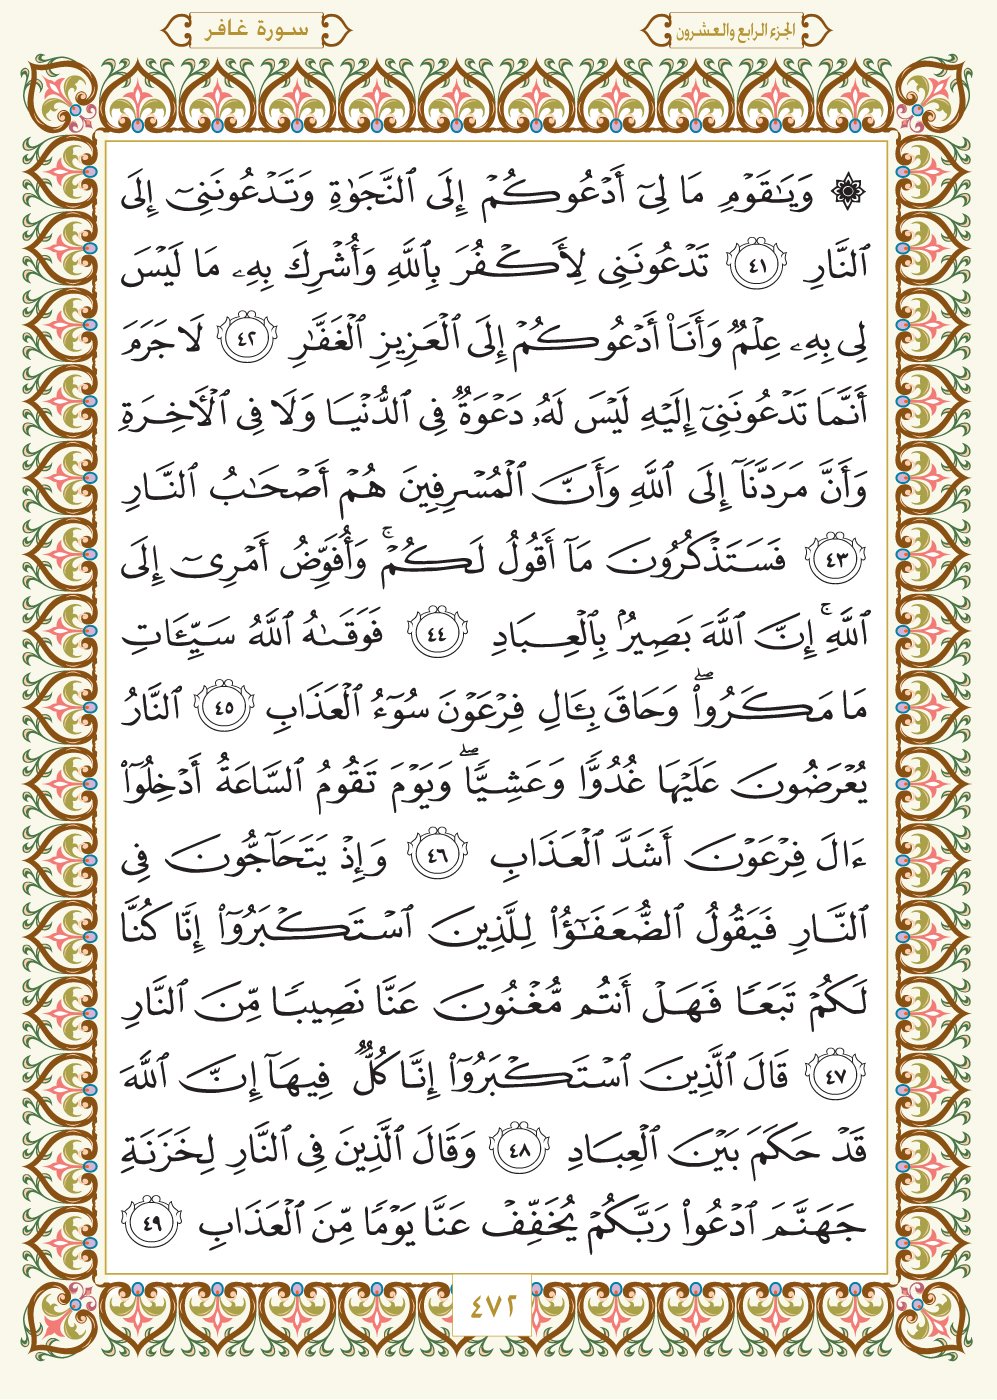 الجزء الرابع والعشرون
سورة غافر
۞ وَيَٰقَوْمِ مَا لِىٓ أَدْعُوكُمْ إِلَى ٱلنَّجَوٰةِ وَتَدْعُونَنِىٓ إِلَى
ٱلنَّارِ ٤١ تَدْعُونَنِى لِأَكْفُرَ بِٱللَّهِ وَأُشْرِكَ بِهِۦ مَا لَيْسَ
لِى بِهِۦ عِلْمٌ وَأَنَا۠ أَدْعُوكُمْ إِلَى ٱلْعَزِيزِ ٱلْغَفَّٰرِ ٤٢ لَا جَرَمَ
أَنَّمَا تَدْعُونَنِىٓ إِلَيْهِ لَيْسَ لَهُۥ دَعْوَةٌ فِى ٱلدُّنْيَا وَلَا فِى ٱلْأَخِرَةِ
وَأَنَّ مَرَدَّنَآ إِلَى ٱللَّهِ وَأَنَّ ٱلْمُسْرِفِينَ هُمْ أَصْحَٰبُ ٱلنَّارِ
٤٣ فَسَتَذْكُرُونَ مَآ أَقُولُ لَكُمْۚ وَأُفَوِّضُ أَمْرِىٓ إِلَى
ٱللَّهِۚ إِنَّ ٱللَّهَ بَصِيرٌۢ بِٱلْعِبَادِ ٤٤ فَوَقَىٰهُ ٱللَّهُ سَيِّـَٔاتِ
مَا مَكَرُوا۟ۖ وَحَاقَ بِـَٔالِ فِرْعَوْنَ سُوٓءُ ٱلْعَذَابِ ٤٥ ٱلنَّارُ
يُعْرَضُونَ عَلَيْهَا غُدُوًّا وَعَشِيًّاۖ وَيَوْمَ تَقُومُ ٱلسَّاعَةُ أَدْخِلُوٓا۟
ءَالَ فِرْعَوْنَ أَشَدَّ ٱلْعَذَابِ ٤٦ وَإِذْ يَتَحَآجُّونَ فِى
ٱلنَّارِ فَيَقُولُ ٱلضُّعَفَٰٓؤُا۟ لِلَّذِينَ ٱسْتَكْبَرُوٓا۟ إِنَّا كُنَّا
لَكُمْ تَبَعًا فَهَلْ أَنتُم مُّغْنُونَ عَنَّا نَصِيبًا مِّنَ ٱلنَّارِ
٤٧ قَالَ ٱلَّذِينَ ٱسْتَكْبَرُوٓا۟ إِنَّا كُلٌّ فِيهَآ إِنَّ ٱللَّهَ
قَدْ حَكَمَ بَيْنَ ٱلْعِبَادِ ٤٨ وَقَالَ ٱلَّذِينَ فِى ٱلنَّارِ لِخَزَنَةِ
جَهَنَّمَ ٱدْعُوا۟ رَبَّكُمْ يُخَفِّفْ عَنَّا يَوْمًا مِّنَ ٱلْعَذَابِ ٤٩
٤٧٢